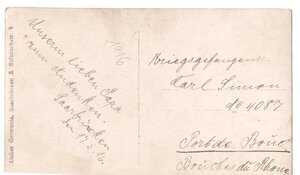 Atelier Germania, Saarbrücken 3, Sulzbachstr. 3.
Unserm lieben Papa
zum Andenken.
Saarbrücken
11.5.16.
1916
Kriegsgefangener
Carl Simon
No 4087
Port de Bouc
Bouches du Rhone